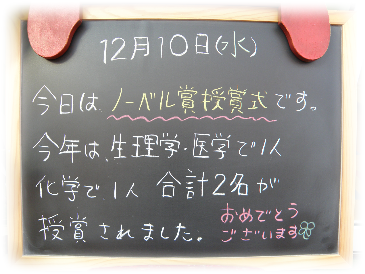 12月10日(水)
今日は ノーベル賞授賞式です。
今年は、生理学・医学で1人
化学で1人 合計2名が
授賞されました。 おめでとう
ございます